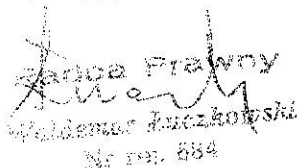 Radca Prawny
Waldemar Łuczkowski
Nr rej. 684